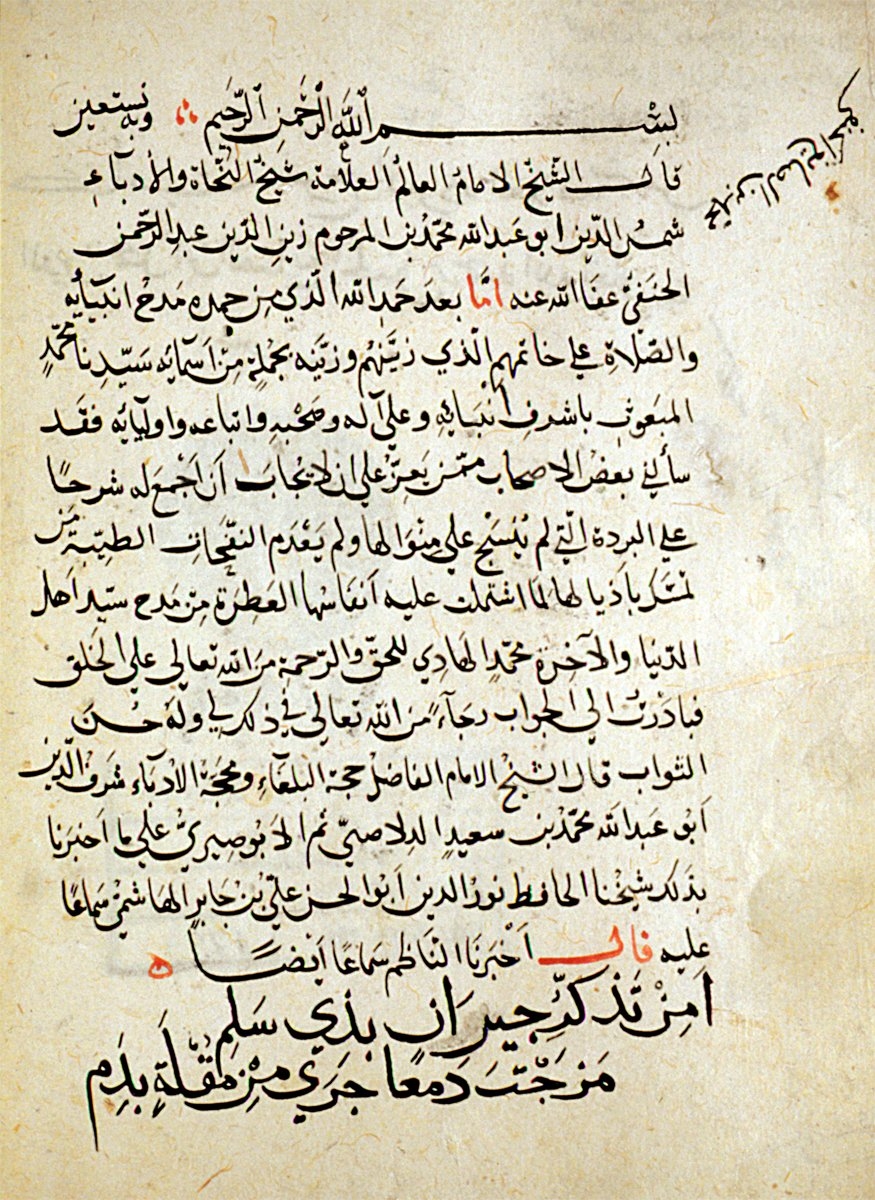 بِسْمِ اللَّهِ الرَّحْمَنِ الرَّحِيمِ وبه نستعين
محمد بن الصايغ الحنفي
قال الشيخ الامامُ العالمُ العلاّمة شيخُ النّحاة والأدبآءِ
شمسُ الدّين ابو عبد الله محمّد بن المرحوم زين الدّين عبد الرحمن
الحنفيُّ عفا الله عنه امَّا بعدَ حَمدِ الله الّذي مِن حمده مَدحُ انبيآيه
والصّلاةِ علي خاتمهم الّذي زيّنهُم وزيّنه بجملةٍ مِن اَسمآيه سَيّدِنا محمّدٍ
المبعوثِ باشرفِ أنبيآيهِ وعلي آله وصَحْبهِ واتباعه واوليآيه فقَد
سألني بعضُ الاصحاب ممّن يَعِزّ علي ان لا يُجابَ أن اَجْمَعَ له شرحًا
علي البردة الّتي لم يُنسَج علي مِنوالها ولم يَعْدَم النفَحاتِ الطيّبةِ مَن
تمسَّكَ باَذيالها لما اشتملت عليه اَنفاسُها العَطِرَة مِن مَدح سيّد اَهل
الدّنيا والآخِرة محمّدٍ الهَادِي للحقّ والرّحمة مِنَ الله تعالي علي الخَلق
فبادَرْتُ الي الجواب رجآءً من الله تعالي في ذلك لي ولَه حُسْنَ
الثواب قال الشيخُ الامام الفاضلُ حجة البلغآءِ ومحجَةُ الأدبآء شرَفُ الدّين
اَبو عبد الله محمّد بن سعيدٍ الدلاصيّ ثم الابوصِيريّ علي ما اَخبرنا
بذلك شيخنا الحافظ نورُ الدين اَبو الحسن عليّ بن جَابرٍ الهَاشميّ سَماعًا
عليه قال اَخْبَرنَا النّاظم سَماعًا اَيضًا
اَمِنْ تَذكّرِ جِيرَانٍ بذِي سَلمِ
مَزَجْتَ دَمعًا جرَي مِنْ مُقْلَةٍ بدَمِ